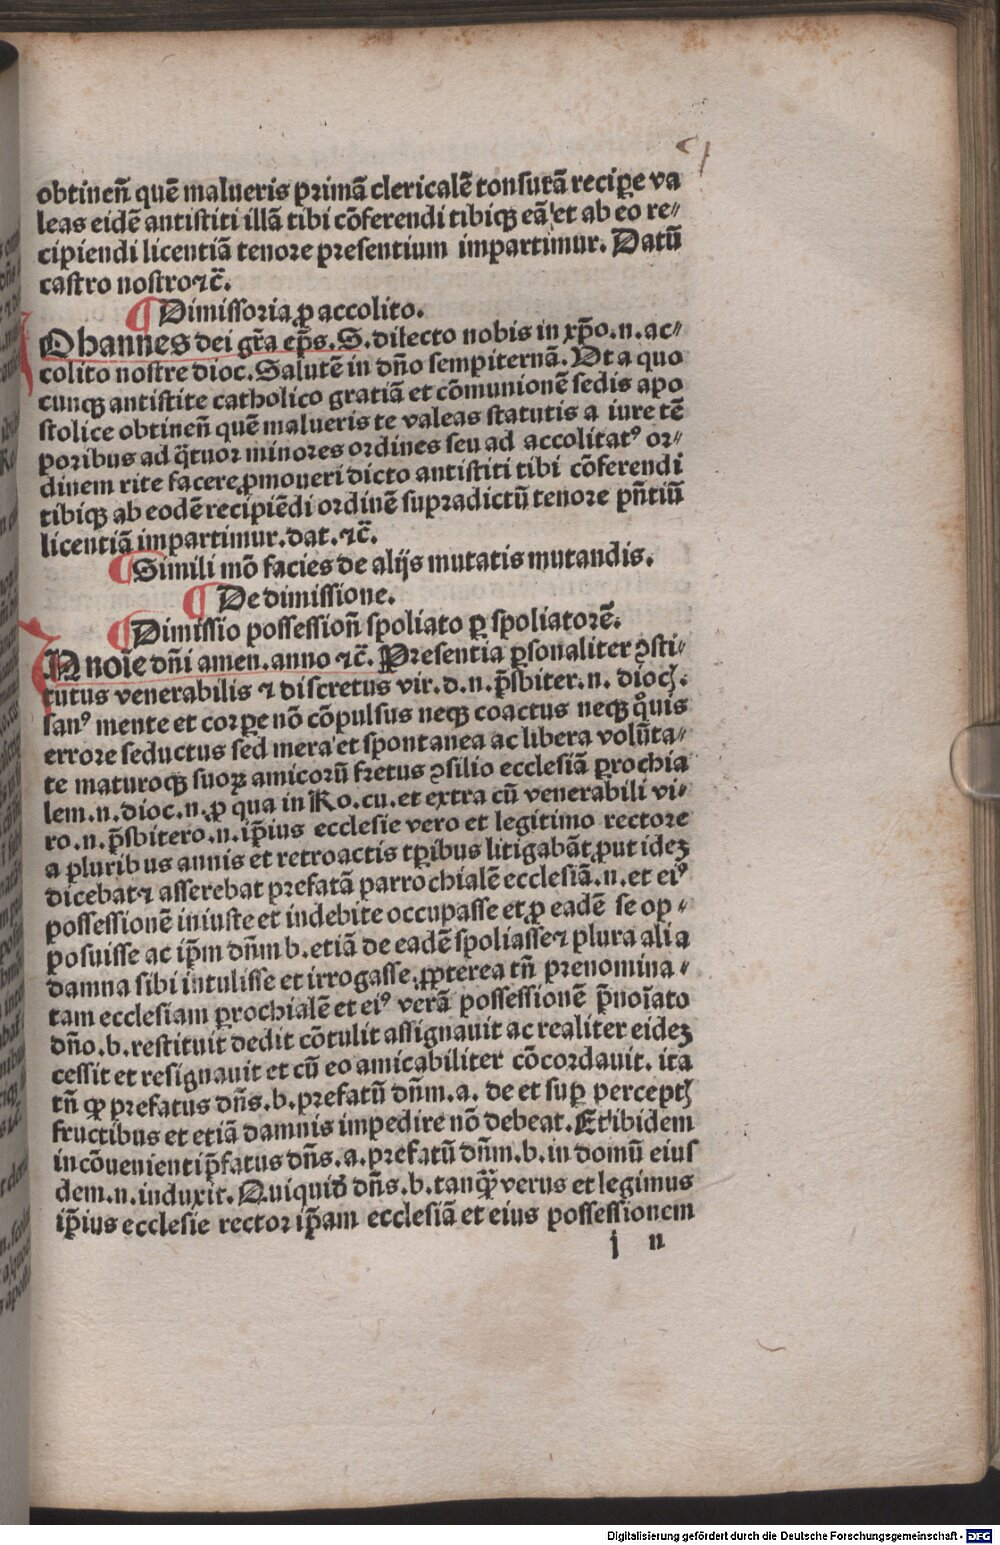 obtineñ quē malueris primā clericalē tonsurā recipe va
leas eidē antistiti illā tibi cōferendi tibiqꝫ eā et ab eo re⸗
cipiendi licentiā tenore presentium impartimur. Datū
castro nostro ⁊c̄.
¶ Dimissoria ꝓ accolito.
Ohannes dei gr̄a ep̄s. S. dilecto nobis in xp̄o .n. ac⸗
colito nostre dioc. Salutē in dño sempiternā. Vt a quo
cunqꝫ antistite catholico gratiā et cōmunionē sedis apo
stolice obtineñ quē malueris te valeas statutis a iure tē
poribus ad q̄tuor minores ordines seu ad accolitatꝰ or⸗
dinem rite facere ꝓmoueri dicto antistiti tibi cōferendi
tibiqꝫ ab eodē recipiēdi ordinē supradictū tenore pn̄tiū
licentiā impartimur. dat. ⁊c̄.
¶ Simili mō facies de alijs mutatis mutandis.
¶ De dimissione.
¶ Dimissio possession̄ spoliato ꝑ spoliatorē.
N noīe dn̄i amen. anno ⁊c̄. Presentia ꝑsonaliter ꝯsti⸗
tutus venerabilis ⁊ discretus vir. d. n. p̄sbiter. n. dioc̄.
sanꝰ mente et corꝑe nō cōpulsus neqꝫ coactus neqꝫ q̊uis
errore seductus sed mera et spontanea ac libera volūta⸗
te maturoqꝫ suoꝝ amicorū fretus ꝯsilio ecclesiā ꝑrochia
lem .n. dioc. n. ꝓ qua in Ro. cu. et extra cū venerabili vi⸗
ro .n. p̄sbitero .n. ip̄ius ecclesie vero et legitimo rectore
a pluribus annis et retroactis tꝑibus litigabāt ꝓut ideꝫ
dicebat ⁊ asserebat prefatā parrochialē ecclesiā .n. et eiꝰ
possessionē iniuste et indebite occupasse et ꝓ eadē se op⸗
posuisse ac ip̄m dn̄m b. etiā de eadē spoliasse ⁊ plura alia
damna sibi intulisse et irrogasse. ꝓpterea tn̄ prenomina⸗
tam ecclesiam ꝑrochialē et eiꝰ verā possessionē p̄noīato
dño. b. restituit dedit cōtulit assignauit ac realiter eideꝫ
cessit et resignauit et cū eo amicabiliter cōcordauit. ita
tn̄ ꝙ prefatus dn̄s. b. prefatū dn̄m. a. de et suꝑ percept̄
fructibus et etiā damnis impedire nō debeat. Et ibidem
incōuenienti p̄fatus dn̄s. a. prefatū dn̄m. b. in domū eius
dem .n. induxit. Quiquid̄ dn̄s. b. tanqꝫ verus et legimus
ip̄ius ecclesie rector ip̄am ecclesiā et eius possessionem
j n
Digitalisierung gefördert durch die Deutsche Forschungsgemeinschaft - DFG